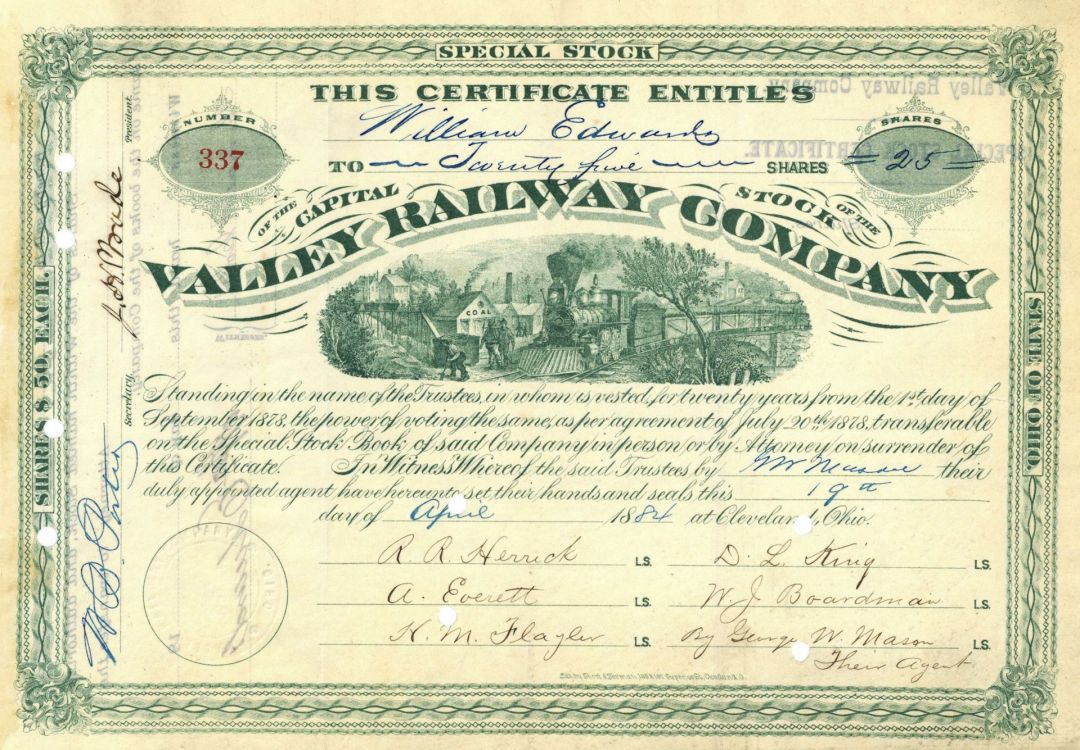 SPECIAL STOCK
THIS CERTIFICATE ENTITLES
William Edwards
NUMBER
337
TO Twenty five SHARES
SHARES
= 25 =
OF THE CAPITAL STOCK OF THE
VALLEY RAILWAY COMPANY
COAL
Standing in the name of the Trustees, in whom is vested, for twenty years from the 1st day of
September 1878, the power of voting the same, as per agreement of July 20th 1878, transferable
on the Special Stock Book of said Company in person or by Attorney on surrender of
this Certificate. In Witness Whereof the said Trustees by G W Mason their
duly appointed agent have hereunto set their hands and seals this 19th
day of April 1884 at Cleveland, Ohio.
R. R. Herrick L.S. D. L. King L.S.
A. Everett L.S. W. J. Boardman L.S.
H. M. Flagler L.S. By George W. Mason L.S.
Their Agent
SHARES $50. EACH.
STATE OF OHIO.
President.
Secretary.
Valley Railway Company
SPECIAL STOCK CERTIFICATE.